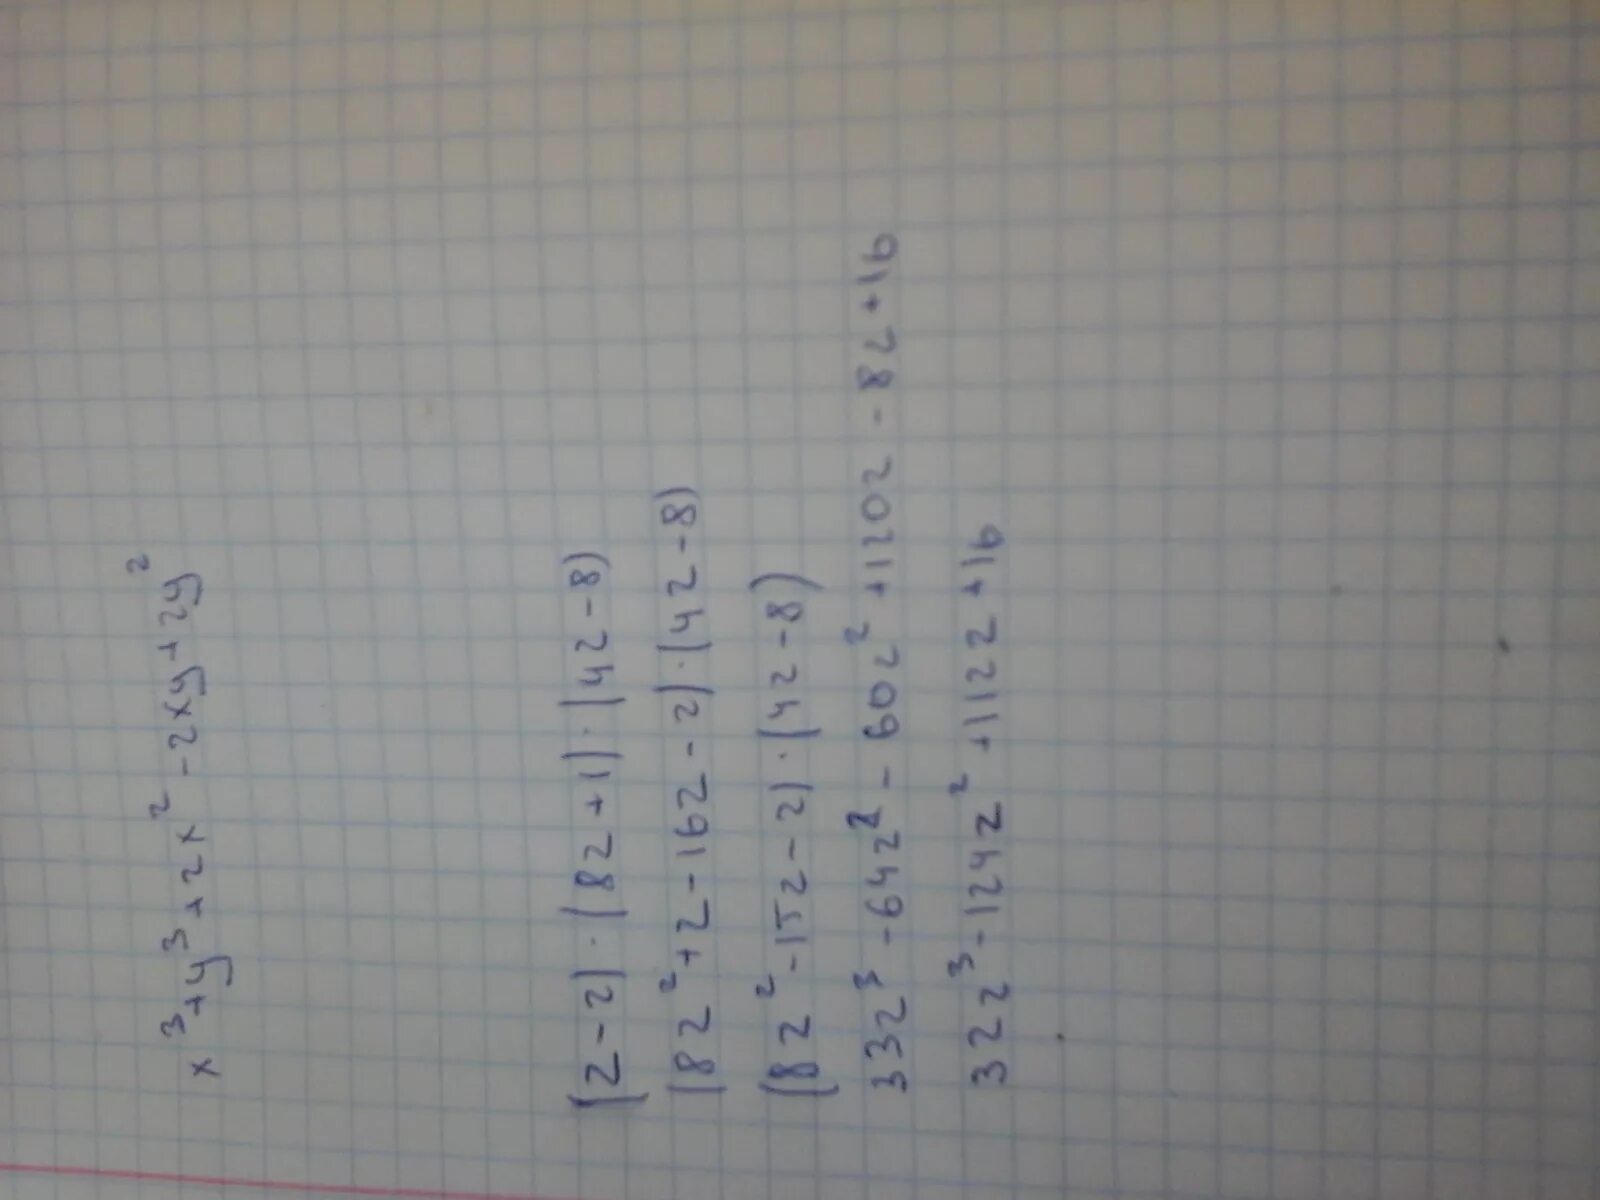 x³+y³+2x²-2xy+2y²
(z-2)·(8z+1)·(4z-8)
(8z²+z-16z-2)·(4z-8)
(8z²-15z-2)·(4z-8)
332³-64z²-60z²+120z-8z+16
32z³-124z²+112z+16